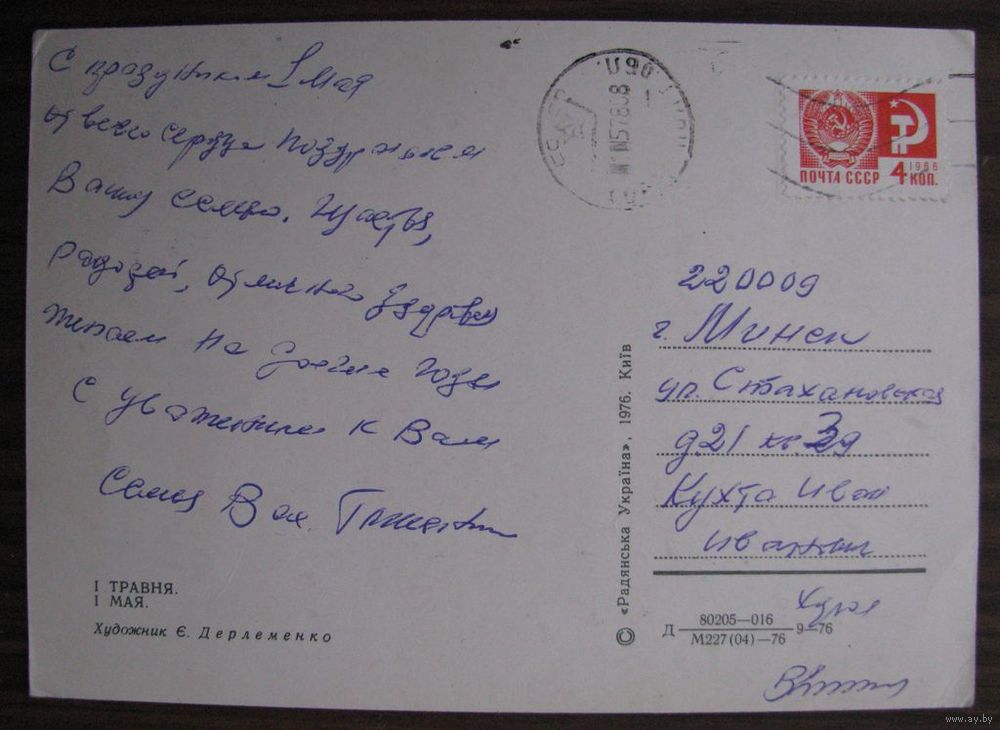 С праздником 1 Мая
от всего сердца поздравляем
Вашу семью. Счастья,
радостей, отличного здоровья
желаем на долгие годы
С уважением к Вам
Семья
ПОЧТА СССР 4 КОП.
1966
220009
г. Минск
ул. Стахановская
д 21 кв. 39
Кухта Иван
Иванович
І ТРАВНЯ.
І МАЯ.
Художник Є. Дерлеменко
© «Радянська Україна», 1976. Київ
Д 80205—016 9—76
М227(04)—76
www.ay.by